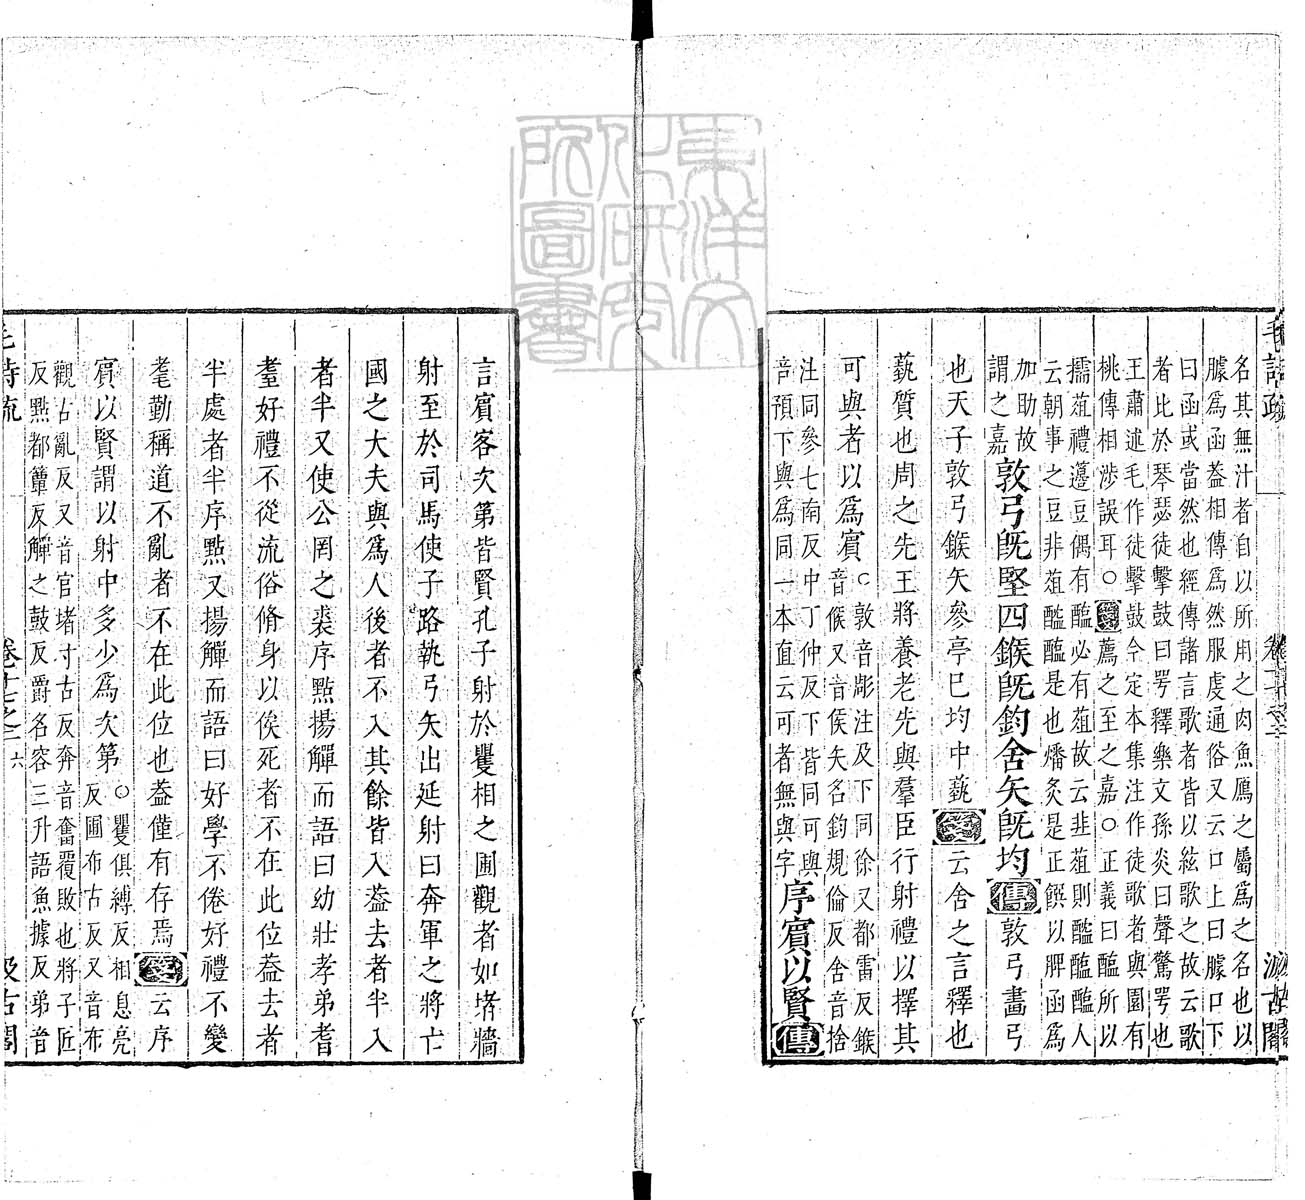 毛詩疏
名其無汁者自以所用之肉魚鴈之屬爲之名也以
臄爲函葢相傳爲然服虔通俗又云口上曰臄口下
曰函或當然也經傳諸言歌者皆以絃歌之故云歌
者比於琴瑟徒擊鼓曰咢釋樂文孫炎曰聲驚咢也
王肅述毛作徒擊鼓今定本集注作徒歌者與園有
桃傳相涉誤耳○
薦之至之嘉○正義曰醢所以
擩菹禮籩豆偶有醢必有菹故云韭菹則醓醢人
云朝事之豆非菹醓醢是也燔炙是正饌以脾函爲
加助故
謂之嘉
敦弓旣堅四鍭旣鈞舍矢旣均傳敦弓畫弓
也天子敦弓鍭矢參亭巳均中蓺箋云舍之言釋也
蓺質也周之先王將養老先與羣臣行射禮以擇其
可與者以爲賓
○敦音彫注及下同徐又都雷反鍭
音候又音侯矢名鈞規倫反舍音捨
注同參七南反中丁仲反下皆同可與
音預下與爲同一本直云可者無與字
序賓以賢傳
言賓客次第皆賢孔子射於矍相之圃觀者如堵牆
射至於司馬使子路執弓矢出延射曰奔軍之將亡
國之大夫與爲人後者不入其餘皆入葢去者半入
者半又使公罔之裘序點揚觶而語曰幼壯孝弟耆
耋好禮不從流俗脩身以俟死者不在此位葢去者
半處者半序點又揚觶而語曰好學不倦好禮不變
耄勤稱道不亂者不在此位也葢僅有存焉箋云序
賓以賢謂以射中多少爲次第
○矍俱縛反相息亮
反圃布古反又音布
觀古亂反又音官堵寸古反奔音奮覆敗也將子匠
反點都簟反觶之鼓反爵名容三升語魚據反弟音
毛詩疏
卷十七之二
六
汲古閣
東洋文化研究所圖書